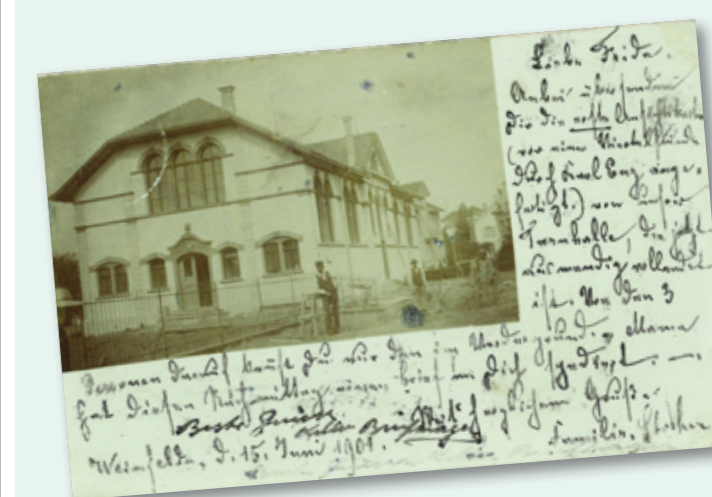 Liebe Frida.
Anbei übersende
Dir die erste Ansichtskarte
(vor einer Viertelstunde
durch Karl Enz ange-
fertigt) von unserer
Turnhalle, die jetzt
auswendig vollendet
ist. Von den 3
Personen darauf kennst Du nur den im Vordergrund. Mama
hat diesen Nachmittag einen Brief an Dich
Beste Grüsse Mit herzlichem Gruß.
Weinfelden, d. 15. Juni 1901. Familie